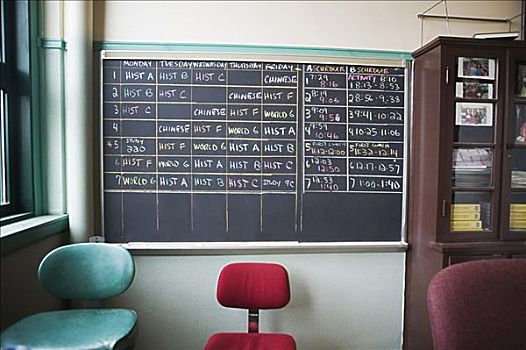 MONDAY TUESDAY WEDNESDAY THURSDAY FRIDAY A SCHEDULE B SCHEDULE
1 HIST A HIST B HIST C CHINESE 1 7:29 8:16 ACTIVITY 8:10 1 8:13-8:53
2 HIST B HIST C CHINESE HIST F 2 8:19 9:06 2 8:56-9:36
3 HIST C CHINESE HIST F WORLD G 3 9:09 9:56 3 9:41-10:22
4 CHINESE HIST F WORLD G HIST A 4 9:59 10:46 4 10:25-11:06
*5 STUDY 220 WORLD G HIST A HIST B 5 FIRST LUNCH 11:12-12:00 5 FIRST LUNCH 11:32-12:14
6 HIST F WORLD G HIST A HIST B HIST C 6 12:03 12:50 6 12:17-12:57
7 WORLD G HIST A HIST B HIST C STUDY 7 12:53 1:40 7 1:00-1:40